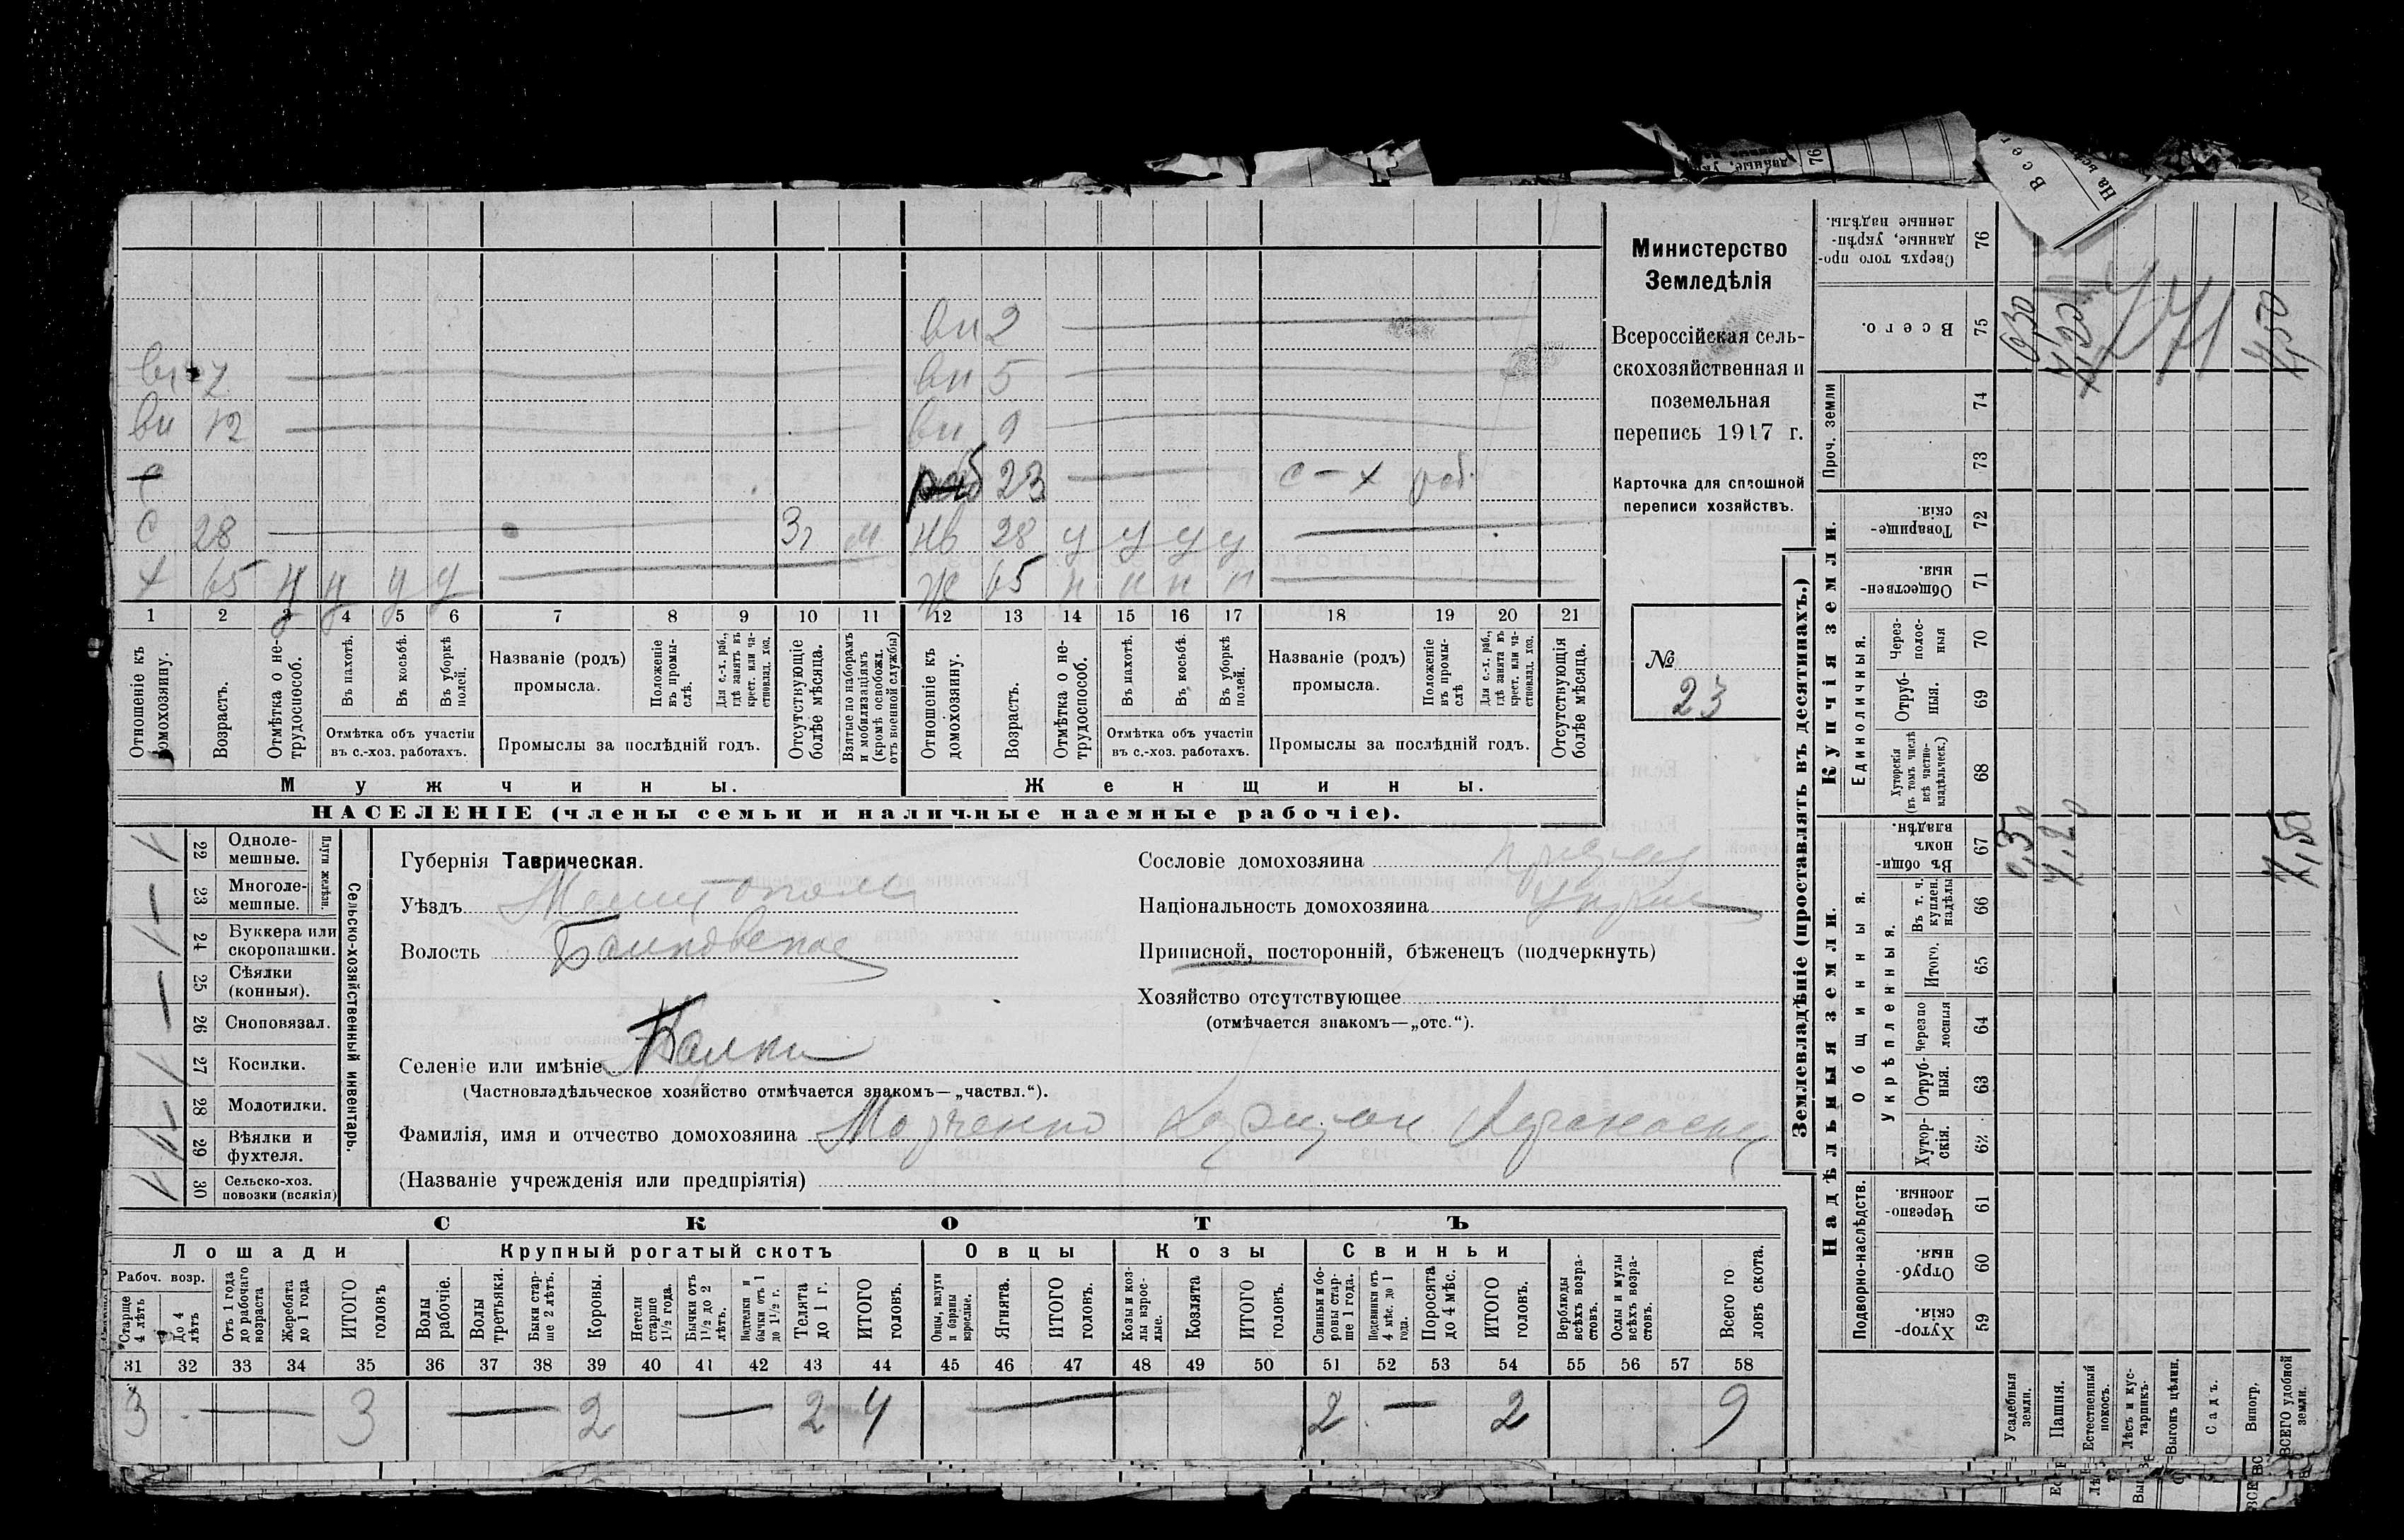 вн 2
вн 7 вн 5
вн 12 вн 9
с раб 23 с-х раб.
с 28 3г м нв 28 у у у у
х 65 у у у у ж 65 н н н н
1 2 3 4 5 6 7 8 9 10 11 12 13 14 15 16 17 18 19 20 21
Отношеніе къ домохозяину.
Возрастъ.
Отмѣтка о не-трудоспособ.
Въ пахотѣ.
Въ косьбѣ.
Въ уборкѣ полей.
Отмѣтка объ участіи
въ с.-хоз. работахъ.
Названіе (родъ)
промысла.
Положеніе въ промы-слѣ.
Для с.-х. раб., гдѣ занятъ въ крест. или ча-стновлад. хоз.
Промыслы за послѣдній годъ.
Отсутствующіе болѣе мѣсяца.
Взятые по наборамъ и мобилизаціямъ (кромѣ освобожд. отъ военной службы)
Отношеніе къ домохозяину.
Возрастъ.
Отмѣтка о не-трудоспособ.
Въ пахотѣ.
Въ косьбѣ.
Въ уборкѣ полей.
Отмѣтка объ участіи
въ с.-хоз. работахъ.
Названіе (родъ)
промысла.
Положеніе въ промы-слѣ
Для с.-х. раб., гдѣ занята въ крест. или ча-стновлад. хоз.
Промыслы за послѣдній годъ.
Отсутствующія болѣе мѣсяца.
Мужчины. Женщины.
НАСЕЛЕНІЕ (члены семьи и наличные наемные рабочіе).
Министерство
Земледѣлія
Всероссійская сель-
скохозяйственная и
поземельная
перепись 1917 г.
Карточка для сплошной
переписи хозяйствъ.
№
23
Сельско-хозяйственный инвентарь.
Плуги желѣзн.
22 Одноле-мешные.
23 Многоле-мешные.
24 Буккера или скоропашки.
25 Сѣялки (конныя).
26 Сноповязал.
27 Косилки.
28 Молотилки.
29 Вѣялки и фухтеля.
30 Сельско-хоз. повозки (всякія)
Губернія Таврическая.
Уѣздъ Мелитопол
Волость Балковская
Селеніе или имѣніе Балки
(Частновладѣльческое хозяйство отмѣчается знакомъ—„частвл.“).
Фамилія, имя и отчество домохозяина
(Названіе учрежденія или предпріятія)
Сословіе домохозяина
Національность домохозяина
Приписной, посторонній, бѣженецъ (подчеркнуть)
Хозяйство отсутствующее
(отмѣчается знакомъ—„отс.“).
СКОТЪ
Лошади Крупный рогатый скотъ Овцы Козы Свиньи
Рабоч. возр.
Старше 4 лѣтъ
До 4 лѣтъ
Отъ 1 года до рабочаго возраста
Жеребята до 1 года
ИТОГО головъ
Волы рабочіе.
Волы третьяки.
Быки стар-ше 2 лѣтъ.
Коровы.
Нетели старше 1½ года.
Бычки отъ 1½ до 2 лѣтъ.
Подтелки и бычки отъ 1 до 1½ г.
Телята до 1 г.
ИТОГО головъ.
Овцы, валухи и бараны взрослые.
Ягнята.
ИТОГО головъ.
Козы и коз-лы взрос-лые.
Козлята
ИТОГО головъ.
Свиньи и бо-ровы стар-ше 1 года.
Подсвинки отъ 4 мѣс. до 1 года.
Поросята до 4 мѣс.
ИТОГО головъ.
Верблюды всѣхъ возра-стовъ.
Ослы и мулы всѣхъ возра-стовъ.
Всего го ловъ скота.
31 32 33 34 35 36 37 38 39 40 41 42 43 44 45 46 47 48 49 50 51 52 53 54 55 56 57 58
3 — 3 — 2 — 2 4 — 2 — 2 9
Землевладѣніе (проставлять въ десятинахъ.)
Надѣльныя земли. Купчія земли. Проч. земли
Подворно-наслѣдств.
Общинныя.
Укрѣпленныя.
Единоличныя.
Сверхъ того про-данные, укрѣп-ленные надѣлы. 76
Всего. 75
74
73
Товарище-скія. 72
Обществен-ныя. 71
Через-полос-ныя 70
Отруб-ныя. 69
Хуторскія (въ томъ числѣ всѣ частно-владѣльческ.) 68
Въ общин-номъ владѣн. 67
Въ т. ч. куплен. надѣлы 66
Итого. 65
Черезпо лосныя 64
Отруб-ныя. 63
Хутор-скія. 62
Черезпо-лосныя. 61
Отруб-ныя. 60
Хутор-скія. 59
Усадебныя земли.
Пашня.
Естественный покосъ.
Лѣсъ и кус-тарникъ.
Выгонъ цѣлин.
Садъ.
Виногр.
ВСЕГО удобной земли.
0,30
4,50
0,30
4,20
4,50